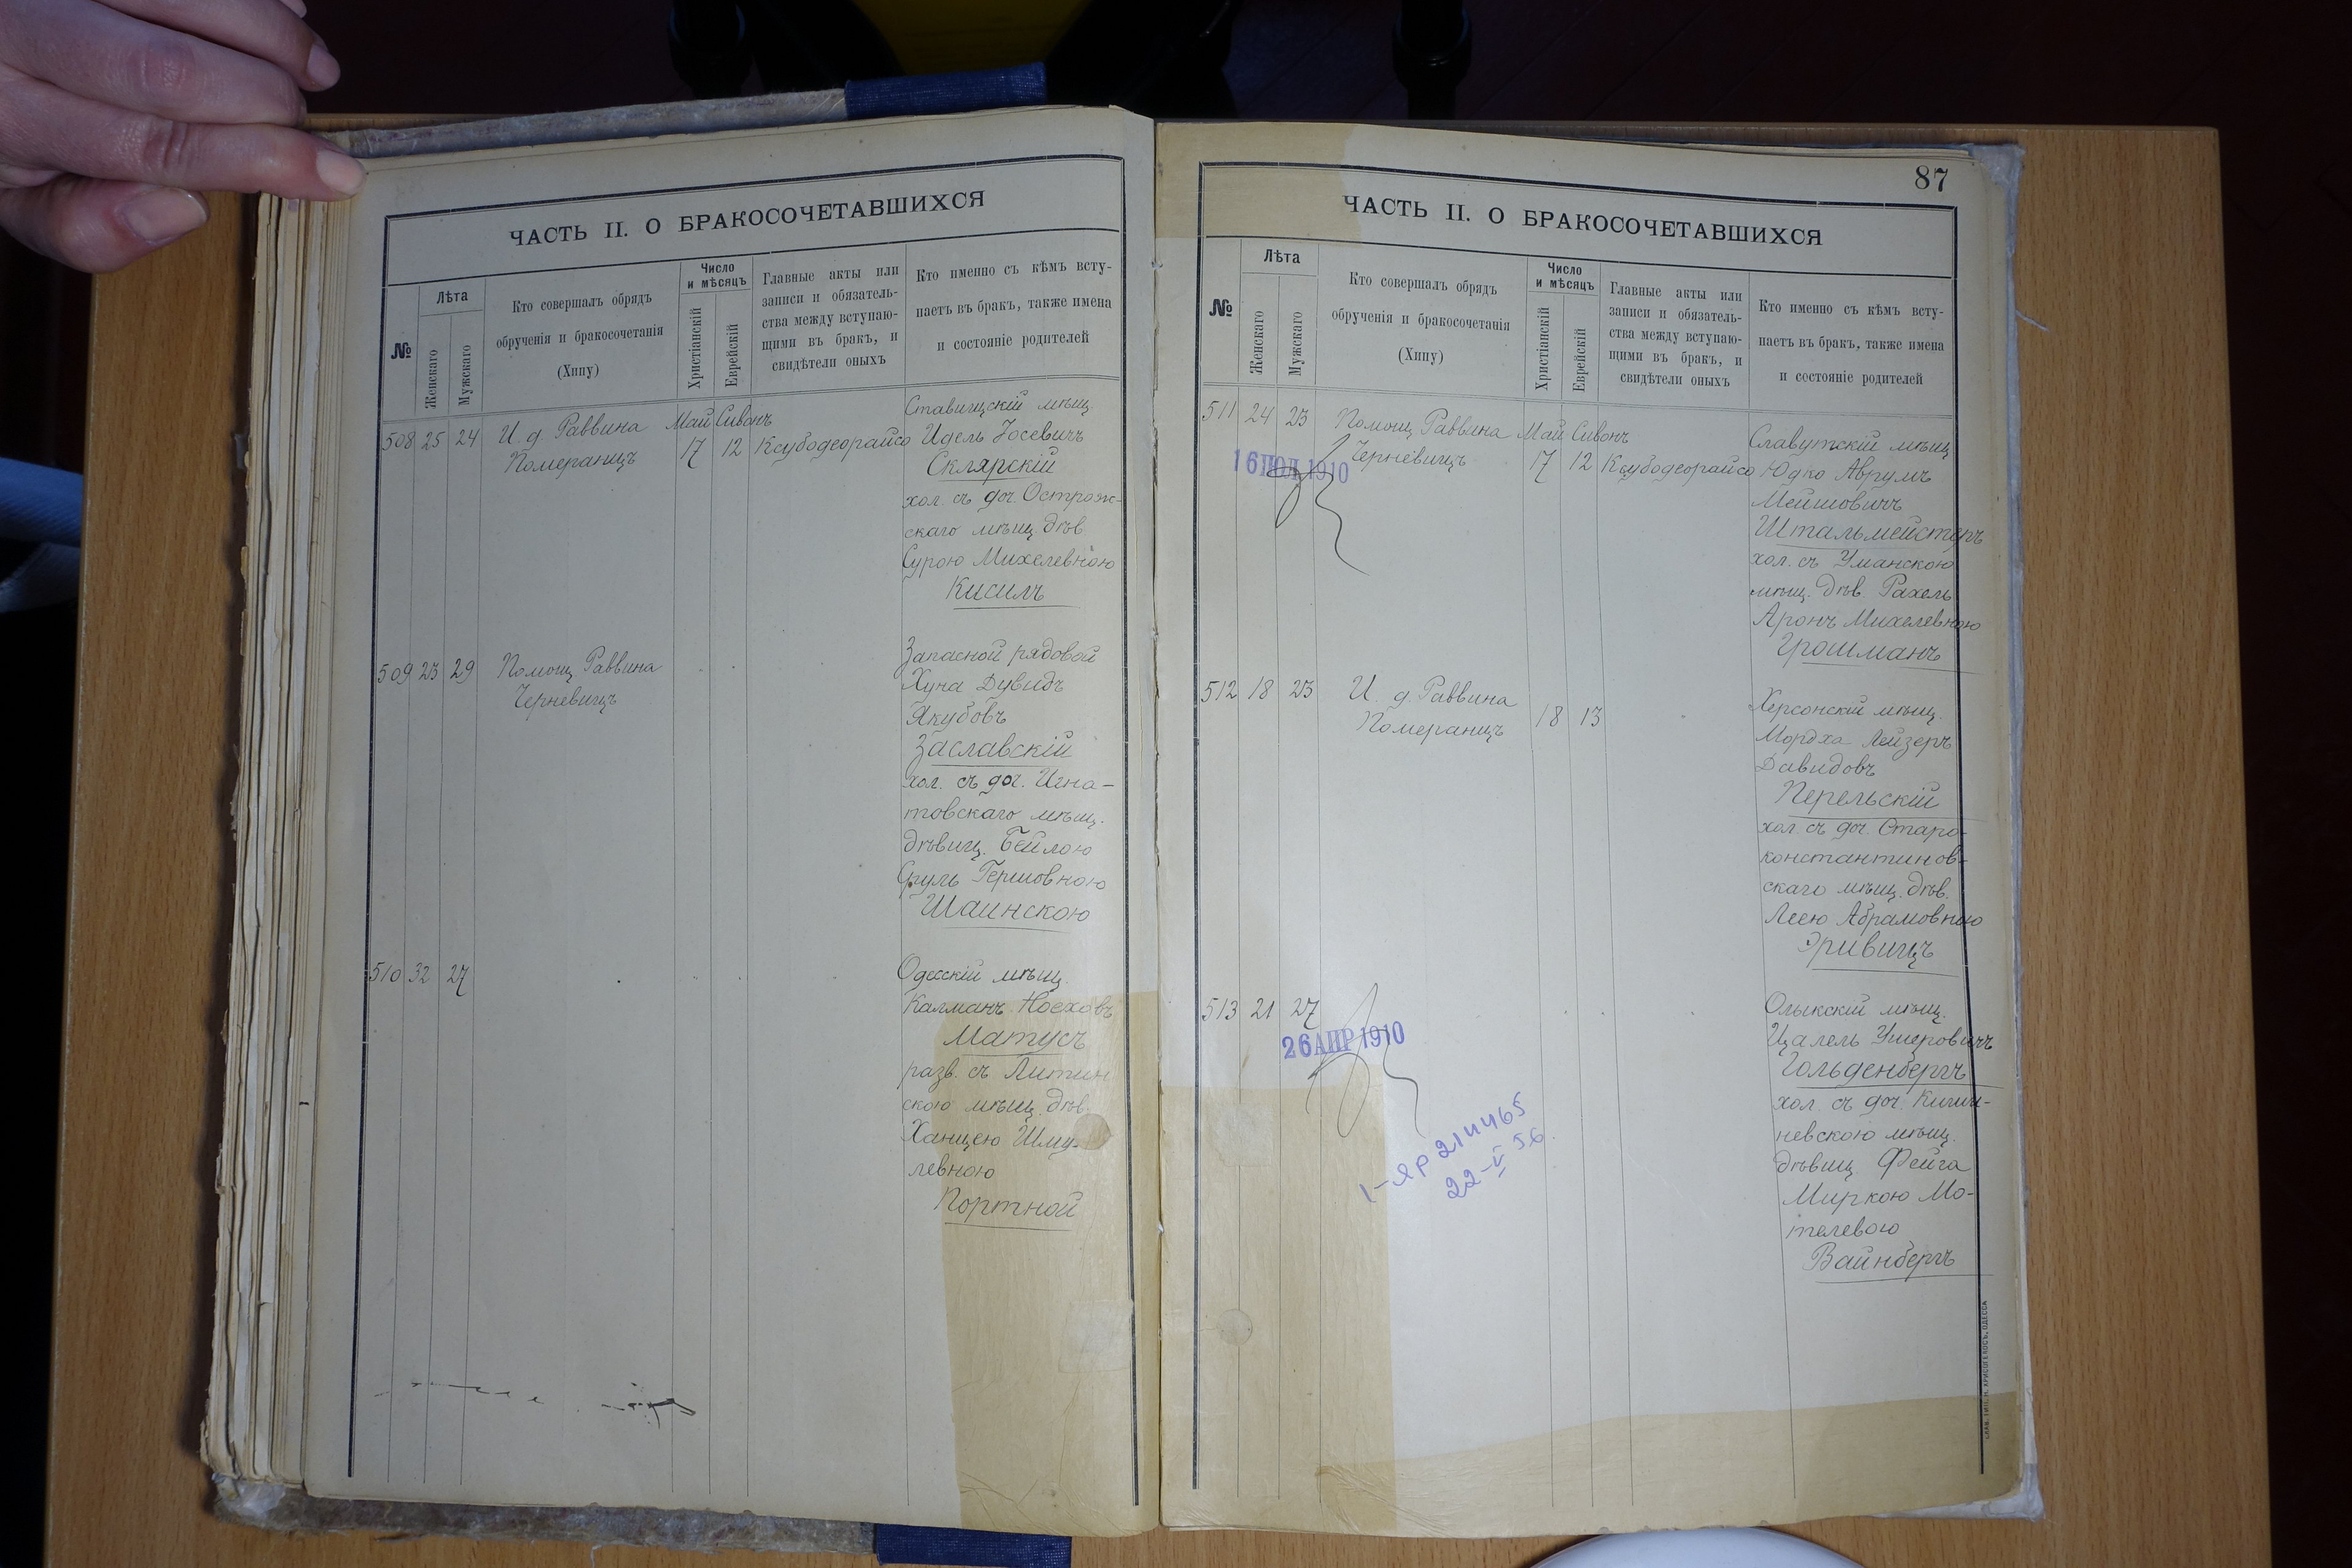 ЧАСТЬ II. О БРАКОСОЧЕТАВШИХСЯ
№
Лѣта
Женскаго
Мужскаго
Кто совершалъ обрядъ
обрученія и бракосочетанія
(Хипу)
Число
и мѣсяцъ
Христіанскій
Еврейскій
Главные акты или
записи и обязатель-
ства между вступаю-
щими въ бракъ, и
свидѣтели оныхъ
Кто именно съ кѣмъ всту-
паетъ въ бракъ, также имена
и состояніе родителей
508 25 24
И. д. Раввина
Померанцъ
Май Сивонъ
17 12
Ксубодеорайсо
Ставищскій мѣщ.
Идель Іосевичъ
Склярскій
хол. съ доч. Острож-
скаго мѣщ. дѣв.
Сурою Михелевною
Кисилъ
509 23 29
Помощ. Раввина
Черневицъ
Запасной рядовой
Хуна Дувидъ
Якубовъ
Заславскій
хол. съ доч. Игна-
товскаго мѣщ.
дѣвиц. Бейлою
Фруль Гершовною
Шаинскою
510 32 27
Одесскій мѣщ.
Калманъ Ноеховъ
Матусъ
разв. съ Литин
скою мѣщ. дѣв.
Ханцею Шму-
левною
Портной
87
ЧАСТЬ II. О БРАКОСОЧЕТАВШИХСЯ
№
Лѣта
Женскаго
Мужскаго
Кто совершалъ обрядъ
обрученія и бракосочетанія
(Хипу)
Число
и мѣсяцъ
Христіанскій
Еврейскій
Главные акты или
записи и обязатель-
ства между вступаю-
щими въ бракъ, и
свидѣтели оныхъ
Кто именно съ кѣмъ всту-
паетъ въ бракъ, также имена
и состояніе родителей
511 24 23
Помощ. Раввина
Черневицъ
16 1910
Май Сивонъ
17 12
Ксубодеорайсо
Славутскій мѣщ
Юдко Аврумъ
Мейшовичъ
Штальмейстеръ
хол. съ Уманскою
мѣщ. дѣв. Рахель
Аронъ Михелевною
Грошманъ
512 18 23
И. д. Раввина
Померанцъ
18 13
Херсонскій мѣщ.
Мордха Лейзеръ
Давидовъ
Перельскій
хол. съ доч. Старо-
константинов-
скаго мѣщ. дѣв.
Леею Абрамовною
Эривицъ
513 21 27
26 АПР 1910
1-ЯР 214465
22-V 56.
Олыкскій мѣщ.
Цалель Ушеровичъ
Гольденбергъ
хол. съ доч. Киши-
невскою мѣщ.
дѣвиц. Фейга
Миркою Мо-
телевою
Вайнбергъ
СЛАВ. ТИП. Н. ХРИСОГЕЛОСЪ, ОДЕССА